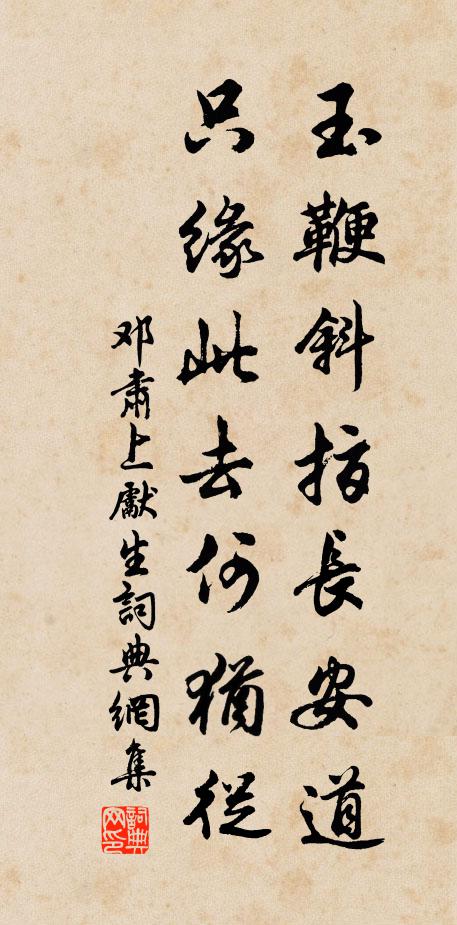 玉鞭斜指長安道
只緣此去何猶從
邓肅上獻生詞典網集
詞典
网印